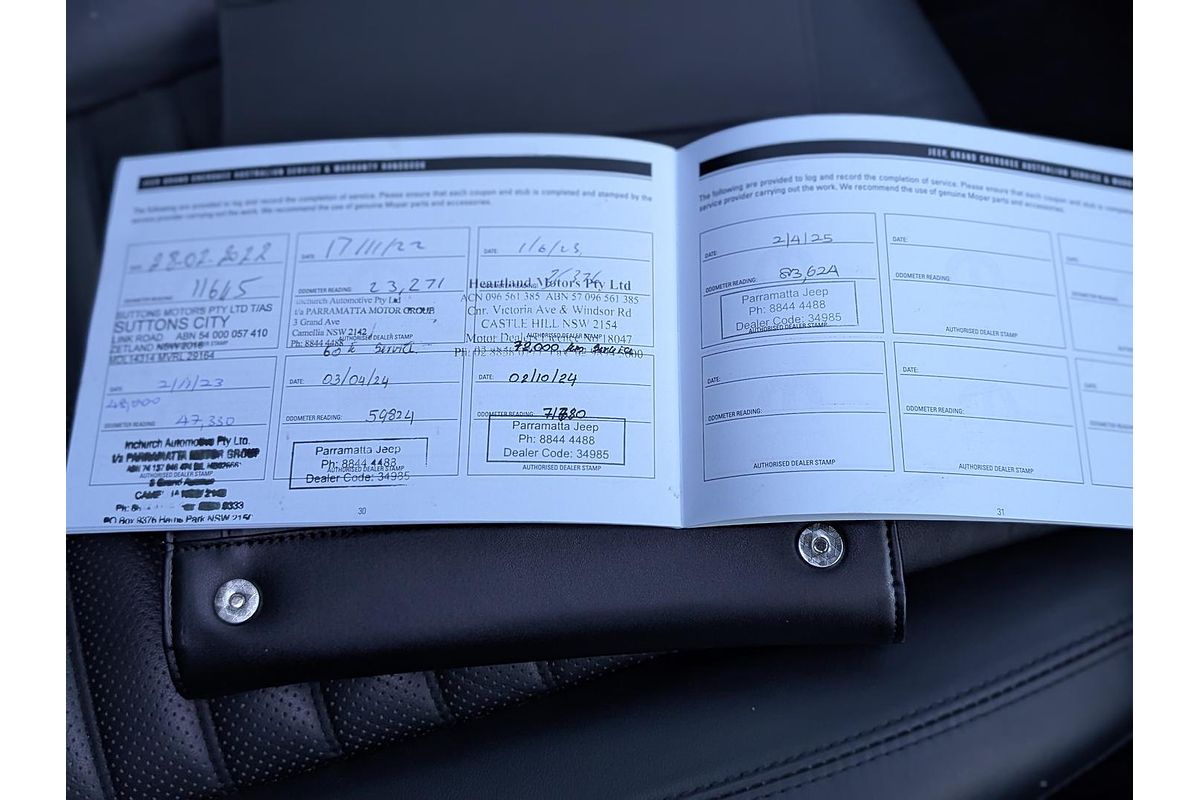 JEEP, GRAND CHEROKEE AUSTRALIAN SERVICE & WARRANTY HANDBOOK
The following are provided to log and record the completion of service. Please ensure that each coupon and stub is completed and stamped by the
service provider carrying out the work. We recommend the use of genuine Mopar parts and accessories.
DATE: 28.02.2022
ODOMETER READING: 11645
SUTTONS MOTORS PTY LTD T/AS
SUTTONS CITY
LINK ROAD ABN 54 000 057 410
ZETLAND NSW 2018
MDL14314 MVRL 29164
DATE: 17/11/22
ODOMETER READING: 23,271
Inchurch Automotive Pty Ltd
t/a PARRAMATTA MOTOR GROUP
3 Grand Ave
Camellia NSW 2142
Ph: 8844 4488
AUTHORISED DEALER STAMP
DATE: 1/6/23
ODOMETER READING:
Heartland Motors Pty Ltd
ACN 096 561 385 ABN 57 096 561 385
Cnr. Victoria Ave & Windsor Rd
CASTLE HILL NSW 2154
AUTHORISED DEALER STAMP
Motor Dealers Licence Nº 18047
DATE: 2/11/23
48,000
ODOMETER READING: 47,330
Inchurch Automotive Pty Ltd.
t/a PARRAMATTA MOTOR GROUP
AUTHORISED DEALER STAMP
3 Grand Avenue
PO Box 9376 Harris Park NSW 215
60 k SERVICE
DATE: 03/04/24
ODOMETER READING: 59824
Parramatta Jeep
Ph: 8844 4488
AUTHORISED DEALER STAMP
Dealer Code: 34985
72,000 km Service
DATE: 02/10/24
ODOMETER READING: 71780
Parramatta Jeep
Ph: 8844 4488
Dealer Code: 34985
AUTHORISED DEALER STAMP
30
JEEP, GRAND CHEROKEE AUSTRALIAN SERVICE & WARR
The following are provided to log and record the completion of service. Please ensure that each coupon and stub is complete
service provider carrying out the work. We recommend the use of genuine Mopar parts and accessories.
DATE: 2/4/25
ODOMETER READING: 83,624
Parramatta Jeep
Ph: 8844 4488
Dealer Code: 34985
AUTHORISED DEALER STAMP
DATE:
ODOMETER READING:
AUTHORISED DEALER STAMP
DATE:
ODOMETER READING:
DATE:
ODOMETER READING:
AUTHORISED DEALER STAMP
DATE:
ODOMETER READING:
AUTHORISED DEALER STAMP
DATE:
ODOMETER READING:
31